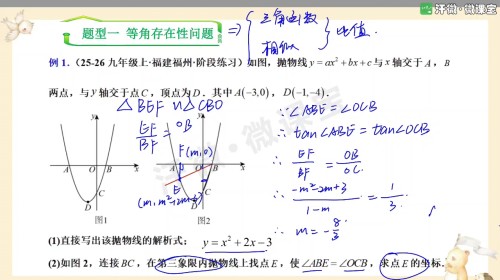 汗微·微课堂
题型一 等角存在性问题
⇒ { 三角函数 相似 } 比值.
例 1.（25-26 九年级上·福建福州·阶段练习）如图，抛物线 y = ax² + bx + c 与 x 轴交于 A，B
两点，与 y 轴交于点 C，顶点为 D．其中 A(−3,0)，D(−1,−4)．
△BEF ∽ △CBO
EF/BF = OB
F(m,0)
y
A O B x
C
D
图1
y
A O B x
E C
(m, m²+2m−3)
图2
∵ ∠ABE = ∠OCB
∴ tan∠ABE = tan∠OCB
∴ EF/BF = OB/OC.
∴ (−m²−2m+3)/(1−m) = 1/3.
∴ m = −8/3
(1)直接写出该抛物线的解析式： y = x² + 2x − 3
(2)如图 2，连接 BC，在第三象限内抛物线上找点 E，使 ∠ABE = ∠OCB，求点 E 的坐标.